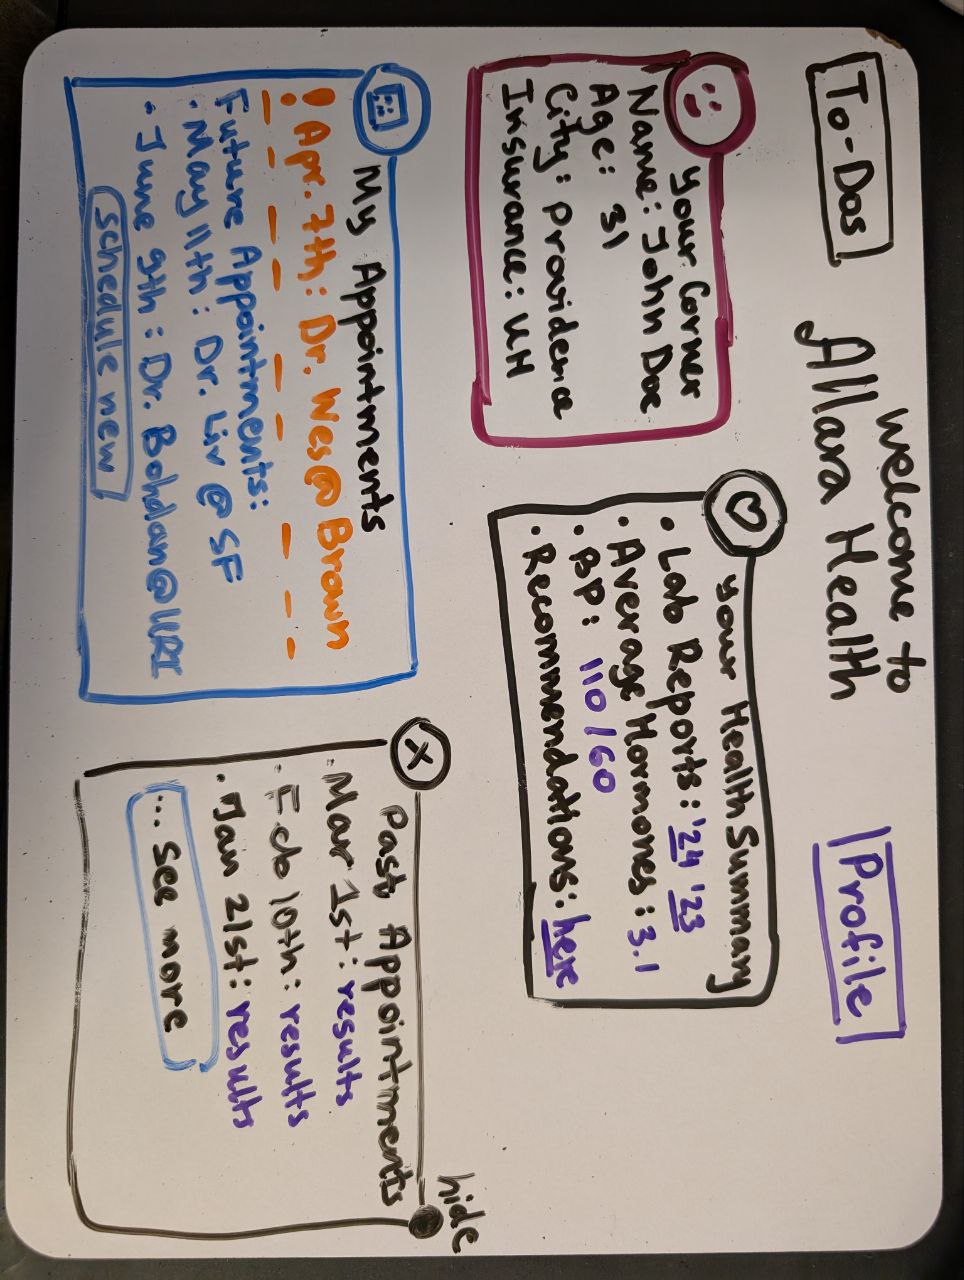 To-Dos
Welcome to
Allara Health
Profile
Your Corner
Name: John Doe
Age: 31
City: Providence
Insurance: UH
Your Health Summary
• Lab Reports: '24 '23
• Average Hormones: 3.1
• BP: 110/60
• Recommendations: here
My Appointments
! Apr. 7th: Dr. Wes@Brown
Future Appointments:
• May 11th: Dr. Liv @ SF
• June 9th: Dr. Bohdan@URI
schedule new
hide
X
Past Appointments
• Mar 1st: results
• Feb 10th: results
• Jan 21st: results
... see more